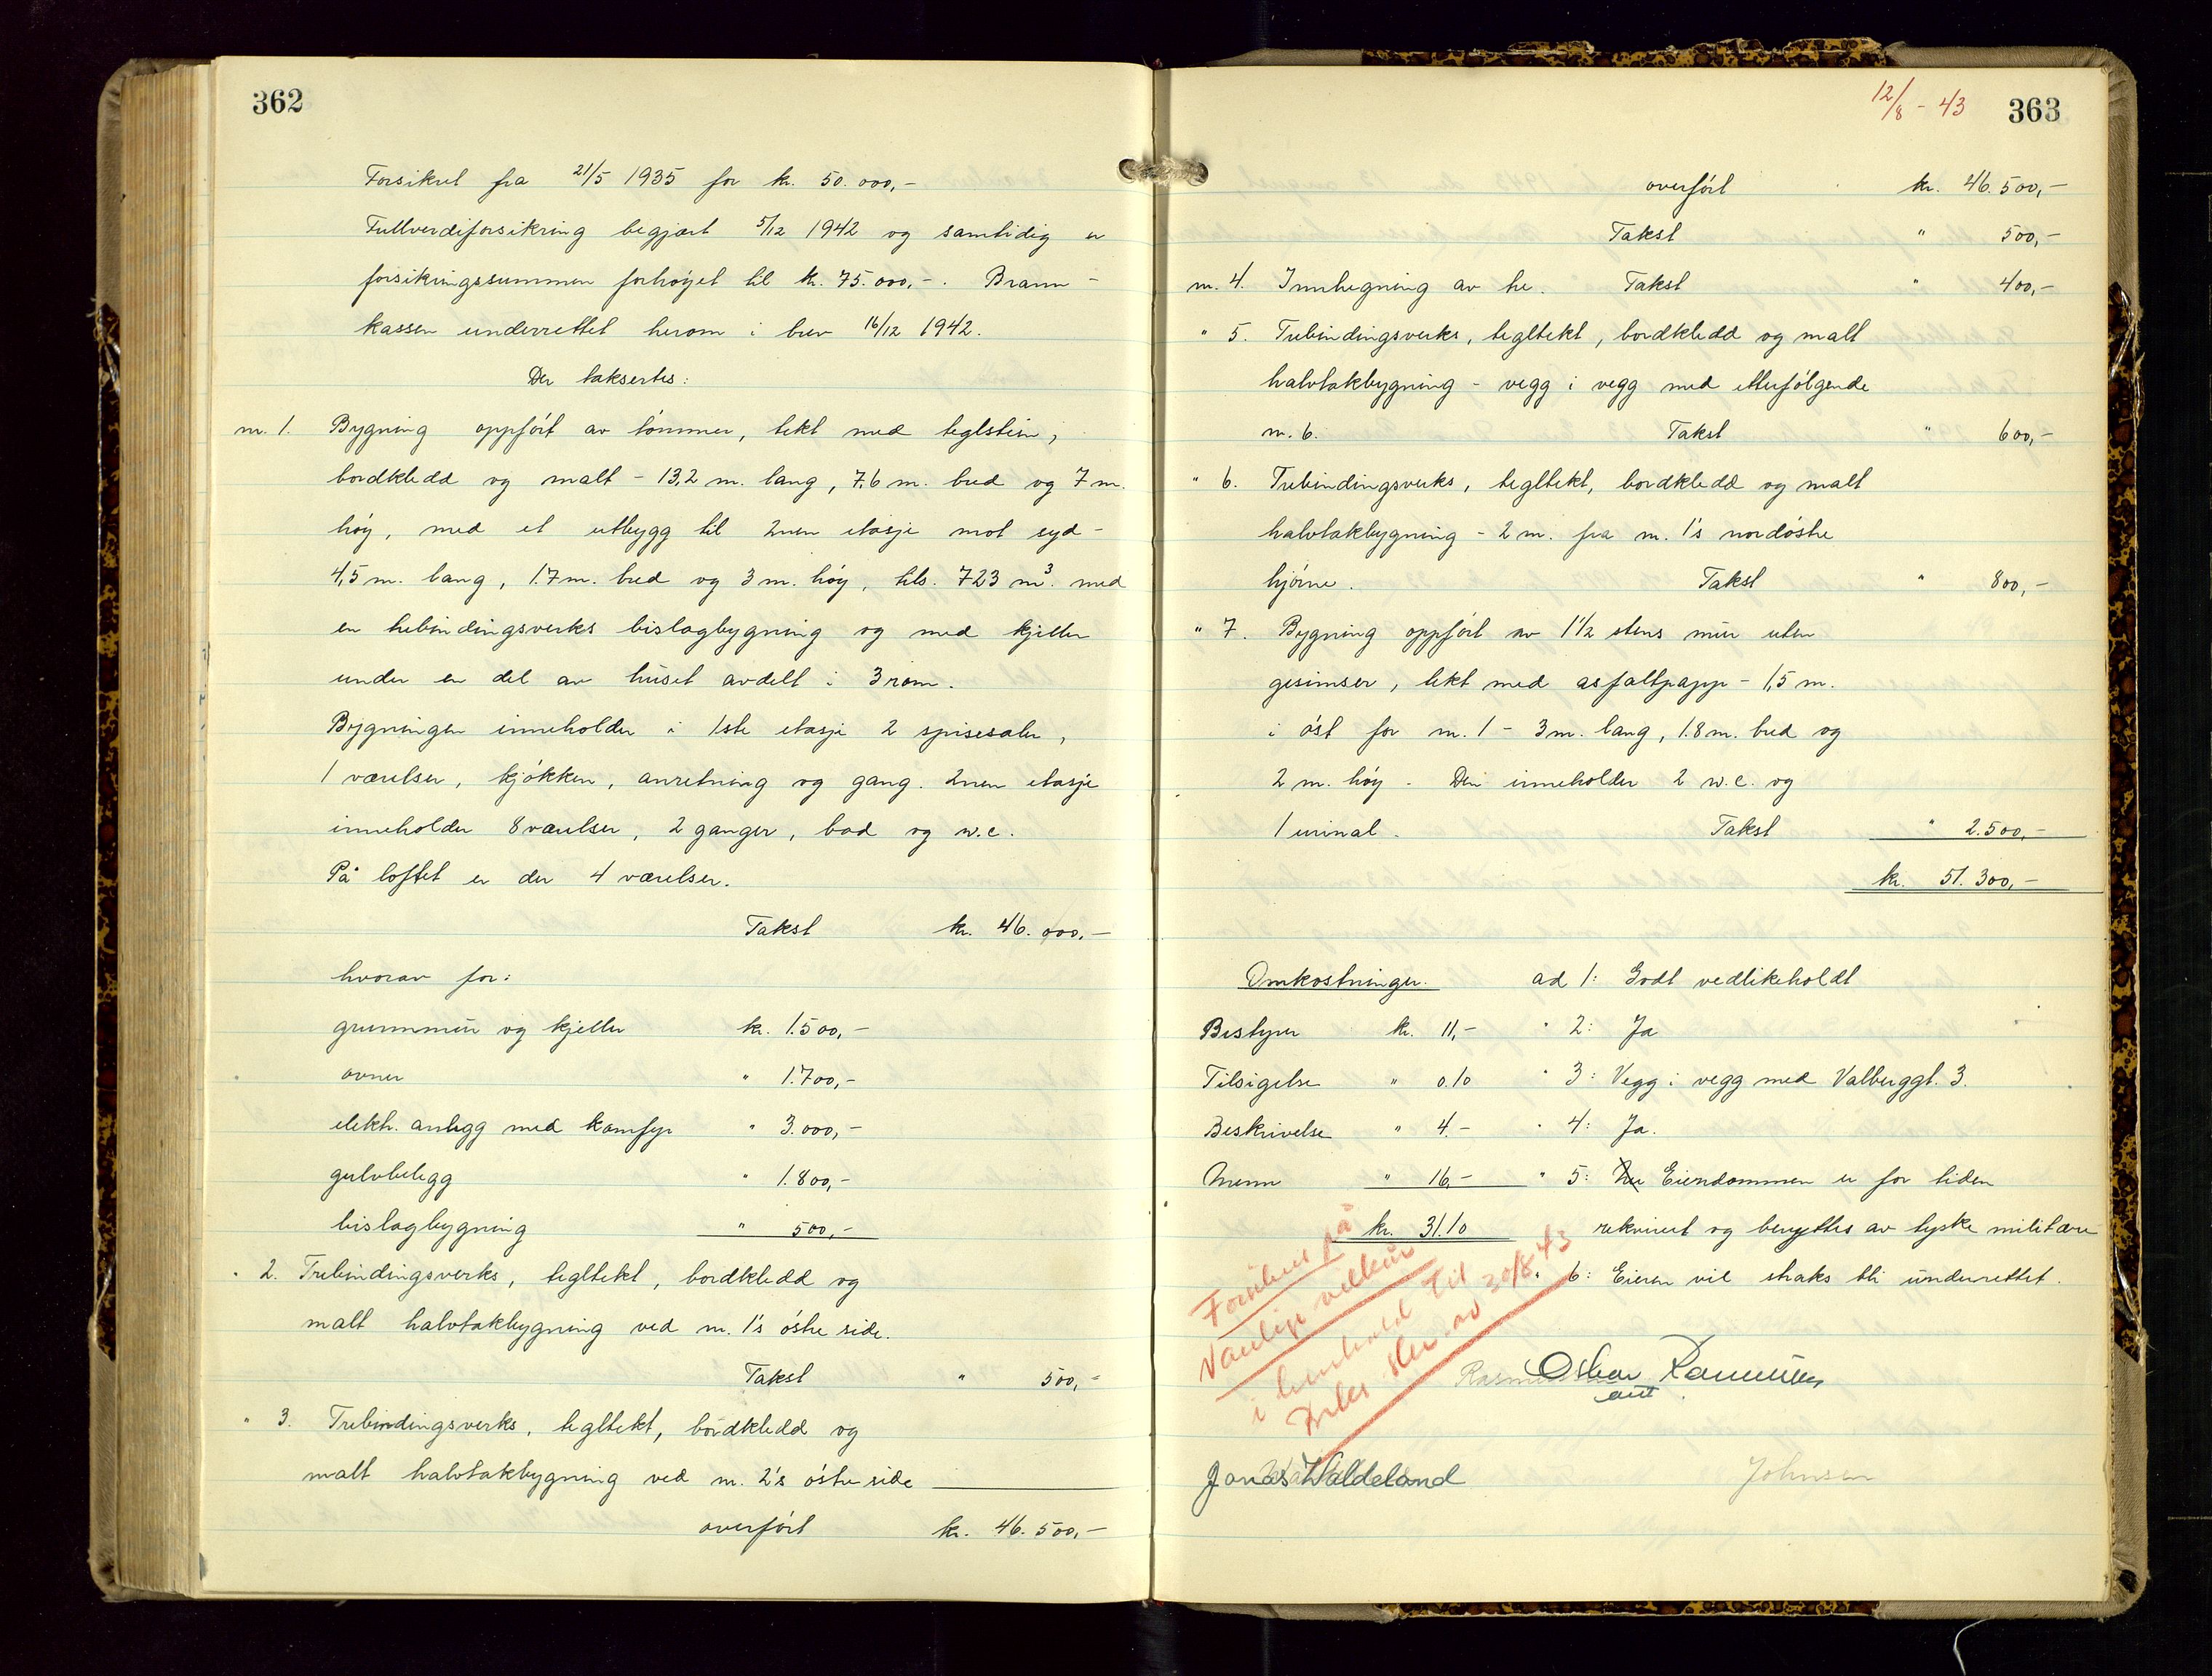 362
Forsikret fra 21/5 1935 for kr. 50.000,-
Fullverdiforsikring begjært 5/12 1942 og samtidig er
forsikringssummen forhøyet til kr. 75.000,-. Brann-
kassen underrettet herom i brev 16/12 1942.
Der taksertes:
nr. 1. Bygning oppført av tømmer, tekt med teglstein,
bordkledd og malt - 13,2 m. lang, 7,6 m. bred og 7 m.
høy, med et utbygg til 2nen etasje mot syd-
4,5 m. lang, 1.7 m. bred og 3 m. høy, tils. 723 m³. med
en trebindingsverks bislagbygning og med kjeller
under en del av huset avdelt i 3 rom.
Bygningen inneholder i 1ste etasje 2 spisesaler,
1 værelser, kjøkken, anretning og gang. 2nen etasje
inneholder 8 værelser, 2 ganger, bad og w.c.
På loftet er der 4 værelser.
Takst kr. 46.000,-
hvorav for:
grunnmur og kjeller kr. 1.500,-
ovner " 1.700,-
elektr. anlegg med komfyr " 3.000,-
gulvbelegg " 1.800,-
bislagbygning " 500,-
" 2. Trebindingsverks, tegltekt, bordkledd og
malt halvtakbygning ved nr. 1's østre side.
Takst " 500,-
" 3. Trebindingsverks, tegltekt, bordkledd og
malt halvtakbygning ved nr. 2's østre side
overført kr. 46.500,-
12/8 - 43 363
overført kr. 46.500,-
Takst " 500,-
nr. 4. Innhegning av tre. Takst " 400,-
" 5. Trebindingsverks, tegltekt, bordkledd og malt
halvtakbygning - vegg i vegg med etterfølgende
nr. 6. Takst " 600,-
" 6. Trebindingsverks, tegltekt, bordkledd og malt
halvtakbygning - 2 m. fra nr. 1's nordøstre
hjørne. Takst " 800,-
" 7. Bygning oppført av 1 1/2 stens mur uten
gesimser, tekt med asfaltpapp - 1,5 m.
i øst for nr. 1 - 3 m. lang, 1.8 m. bred og
2 m. høy - Den inneholder 2 w.c. og
1 urinal. Takst " 2.500,-
kr. 51.300,-
Omkostninger. ad 1: Godt vedlikeholdt
Bestyrer kr. 11,- " 2: Ja
Tilsigelse " 0.10 " 3: Vegg i vegg med Valberggt. 3.
Beskrivelse " 4.- " 4: Ja.
Menn " 16,- " 5: Eiendommen er for tiden
kr. 31.10 rekvirert og benyttes av tyske militære
" 6: Eieren vil straks bli underrettet.
Forsikret på
Vanlige vilkår
i henhold til
av 30/8.43
Oskar Rasmussen
Jonas Waldeland Johnsen